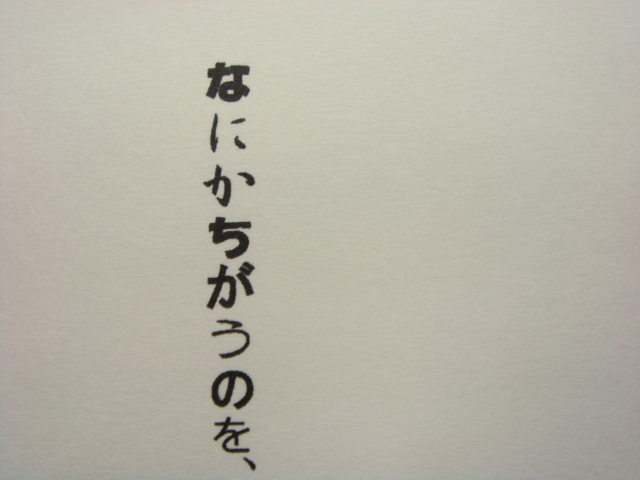 なにかちがうのを、